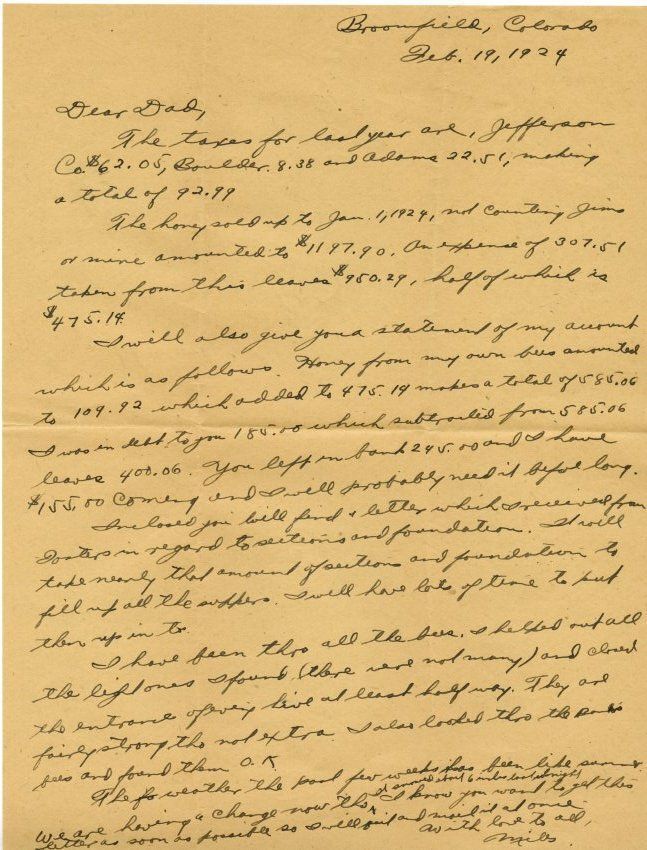 Broomfield, Colorado
Feb. 19, 1924
Dear Dad,
The taxes for last year are, Jefferson
Co. $62.05, Boulder. 8.38 and Adams 22.51, making
a total of 92.99
The honey sold up to Jan. 1, 1924, not counting Jims
or mine amounted to $1197.90. An expense of 307.51
taken from this leaves $950.29, half of which is
$475.14.
I will also give you a statement of my account
which is as follows. Honey from my own bees amounted
to 109.92 which added to 475.14 makes a total of 585.06
I was in debt to you 185.00 which subtracted from 585.06
leaves 400.06. You left in bank 245.00 and I have
$155.00 Comeing and I will probably need it before long.
Inclosed you will find a letter which I received from
Fosters in regard to sections and foundation. It will
take nearly that amount of sections and foundation to
fill up all the suppers. I will have lots of time to put
them up in to.
I have been thro all the bees. I helped out all
the light ones I found (there were not many) and closed
the entrance of every hive at least half way. They are
fairly strong tho not extra. I also looked thro the
bees and found them O.K
The weather the past few weeks has been like summer
we are having a change now tho. I know you want to get this
letter as soon as possible so I will quit and mail it at once
With love to all,
Miles.